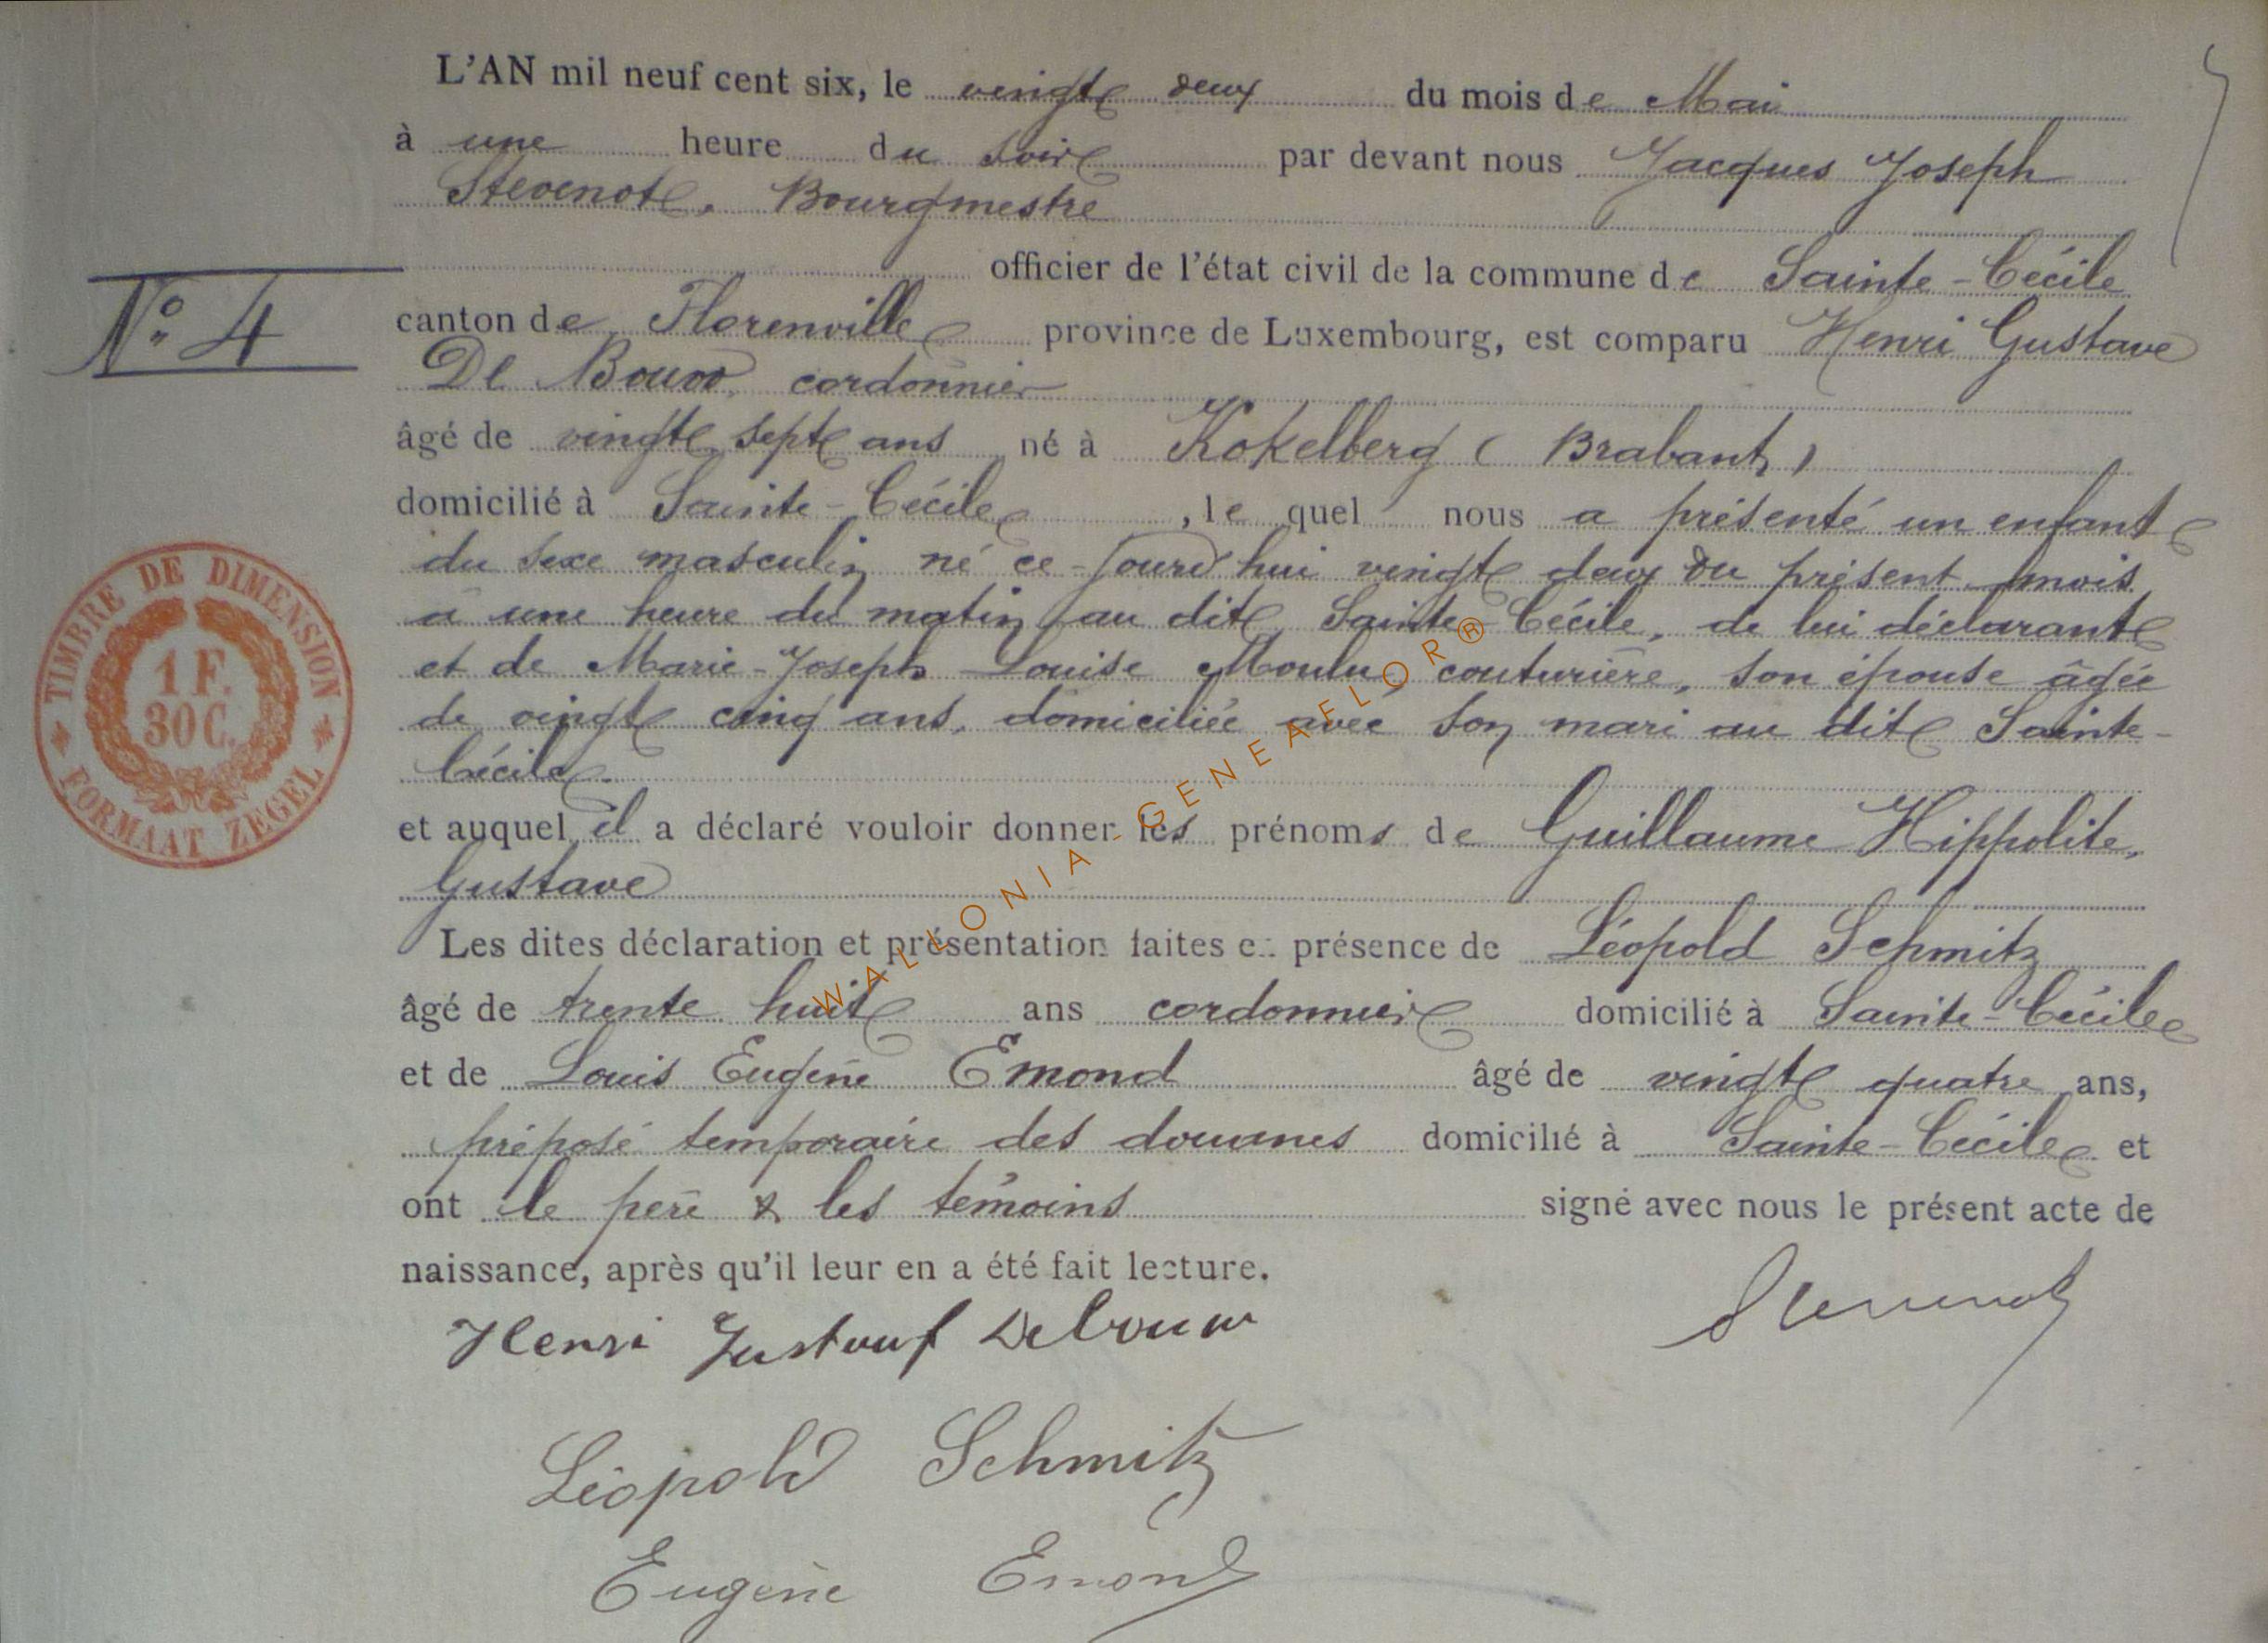 L'AN mil neuf cent six, le vingt deux du mois de Mai
à une heure du soir par devant nous Jacques Joseph
Stevenot, Bourgmestre
officier de l'état civil de la commune de Sainte-Cécile
N° 4
canton de Florenville province de Luxembourg, est comparu Henri Gustave
De Bouw, cordonnier
âgé de vingt sept ans né à Kokelberg ( Brabant )
domicilié à Sainte-Cécile , le quel nous a présenté un enfant
du sexe masculin né ce-jourd'hui vingt deux du présent mois
à une heure du matin au dit Sainte-Cécile, de lui déclarant
et de Marie-Joseph Louise Moulu couturière, son épouse âgée
de vingt cinq ans, domiciliée avec son mari au dit Sainte-
Cécile.
et auquel il a déclaré vouloir donner les prénoms de Guillaume Hippolite,
Gustave
Les dites déclaration et présentation faites en présence de Léopold Schmitz
âgé de trente huit ans cordonnier domicilié à Sainte-Cécile
et de Louis Eugène Emond âgé de vingt quatre ans,
préposé temporaire des douanes domicilié à Sainte-Cécile et
ont le père & les témoins signé avec nous le présent acte de
naissance, après qu'il leur en a été fait lecture.
Henri Gustauf Debouw
Stevenot
Léopold Schmitz
Eugène Emond
TIMBRE DE DIMENSION
1 F.
30 C.
FORMAAT ZEGEL
WALLONIA-GENEAFLOR®